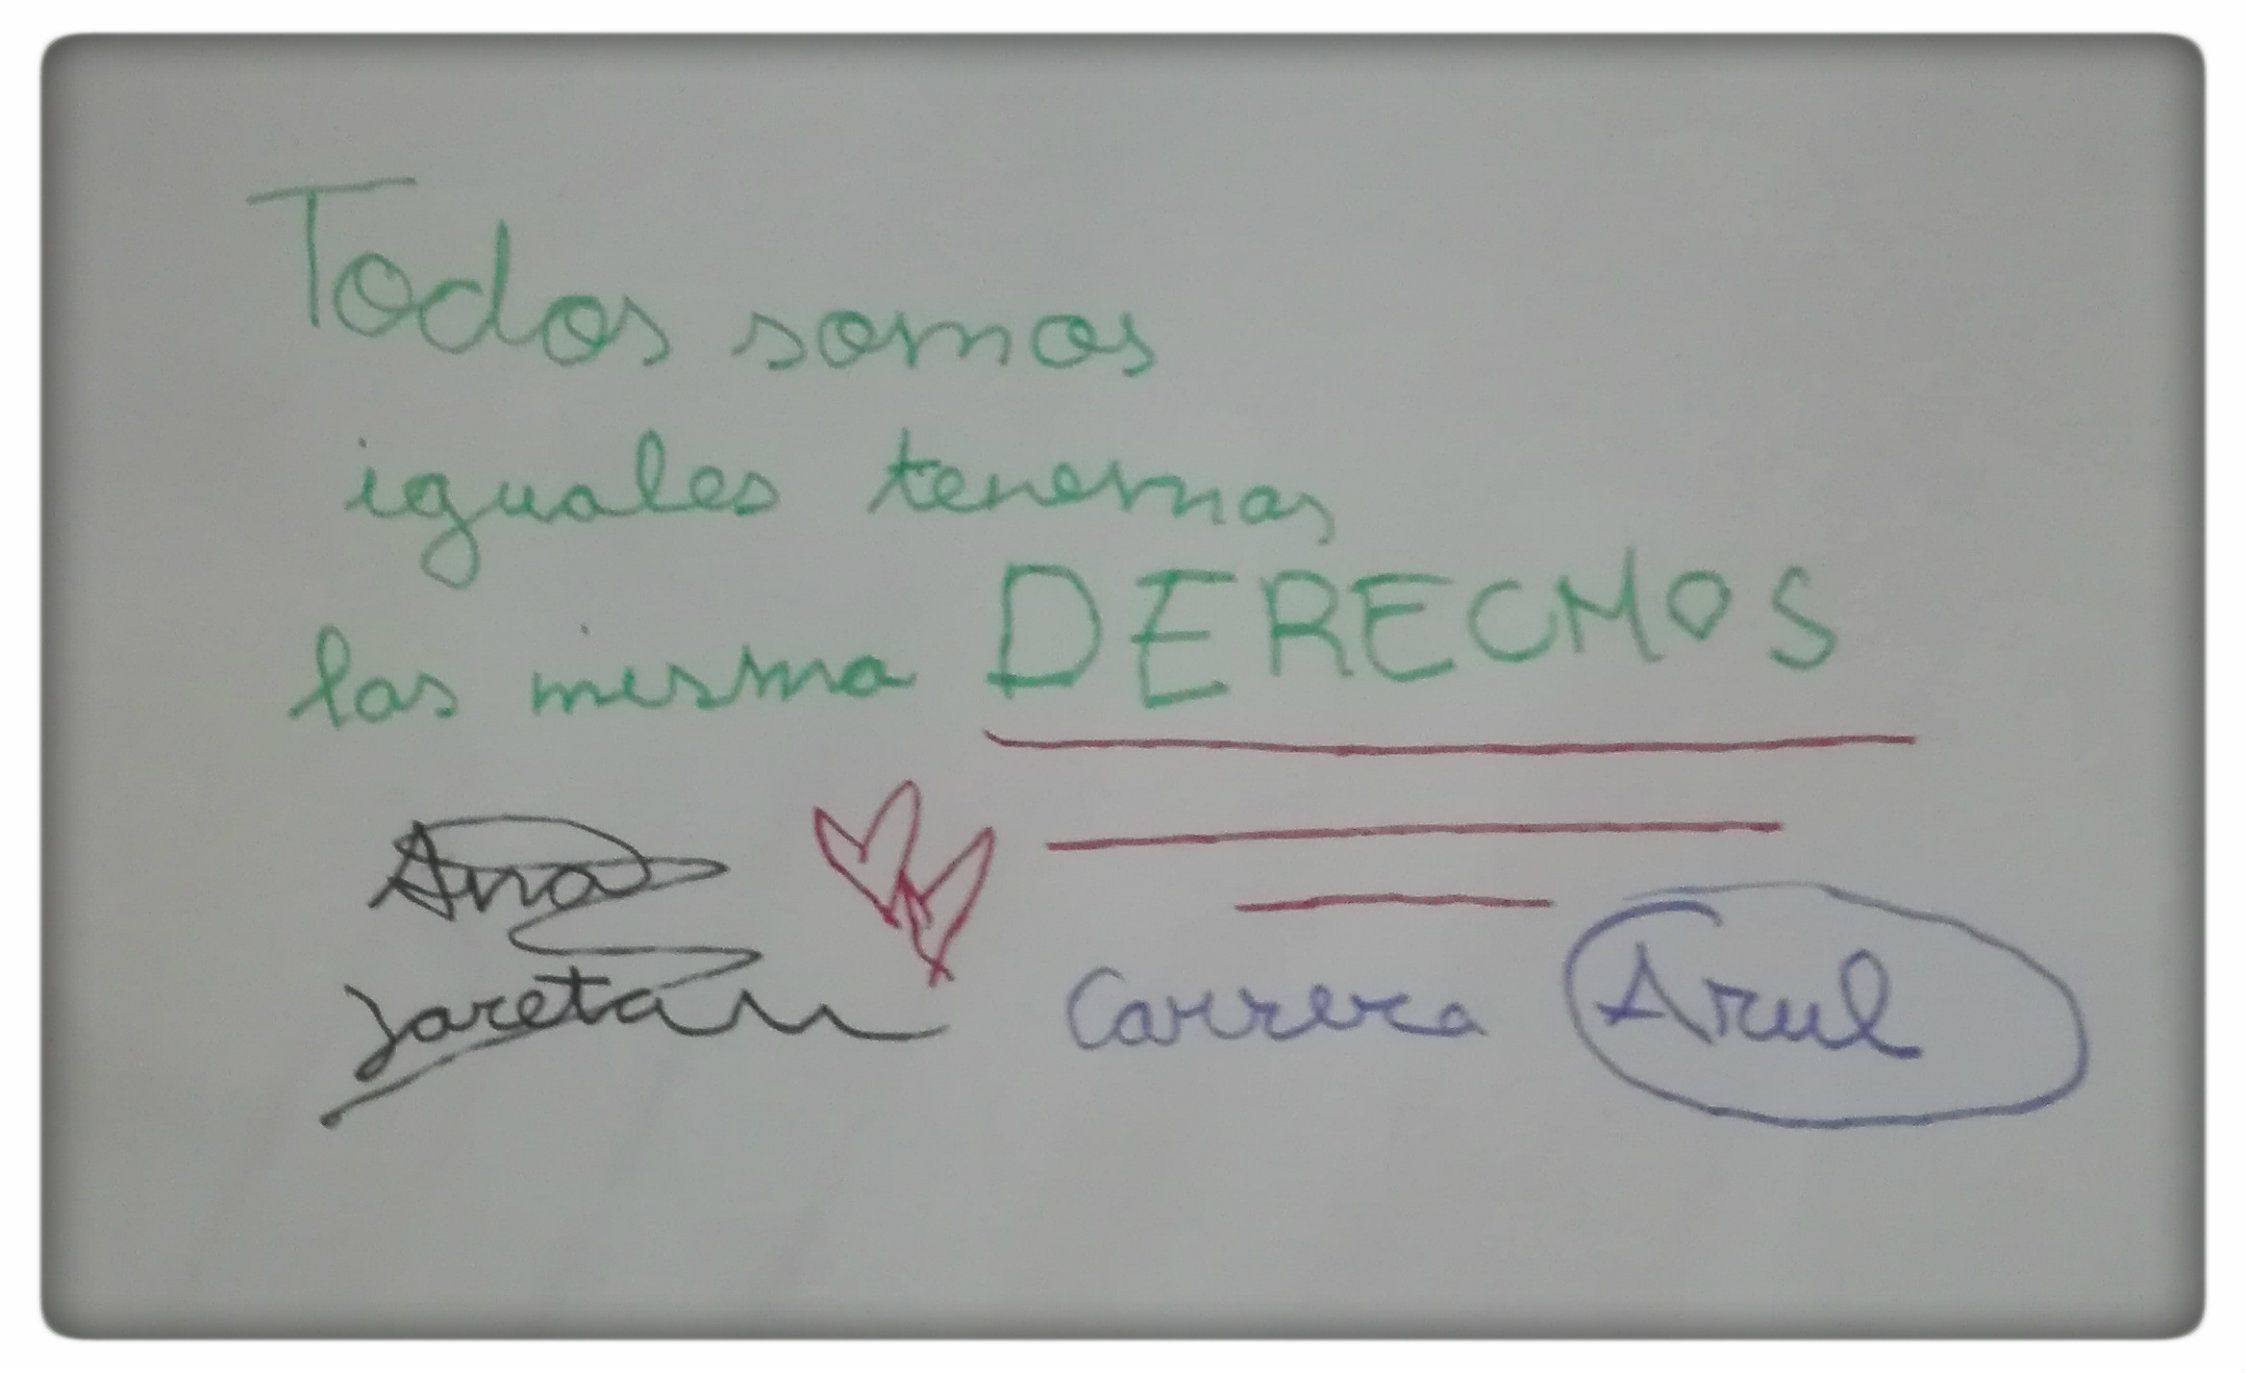 Todos somos
iguales tenemos
las misma DERECHOS
Ana
Carrera Azul